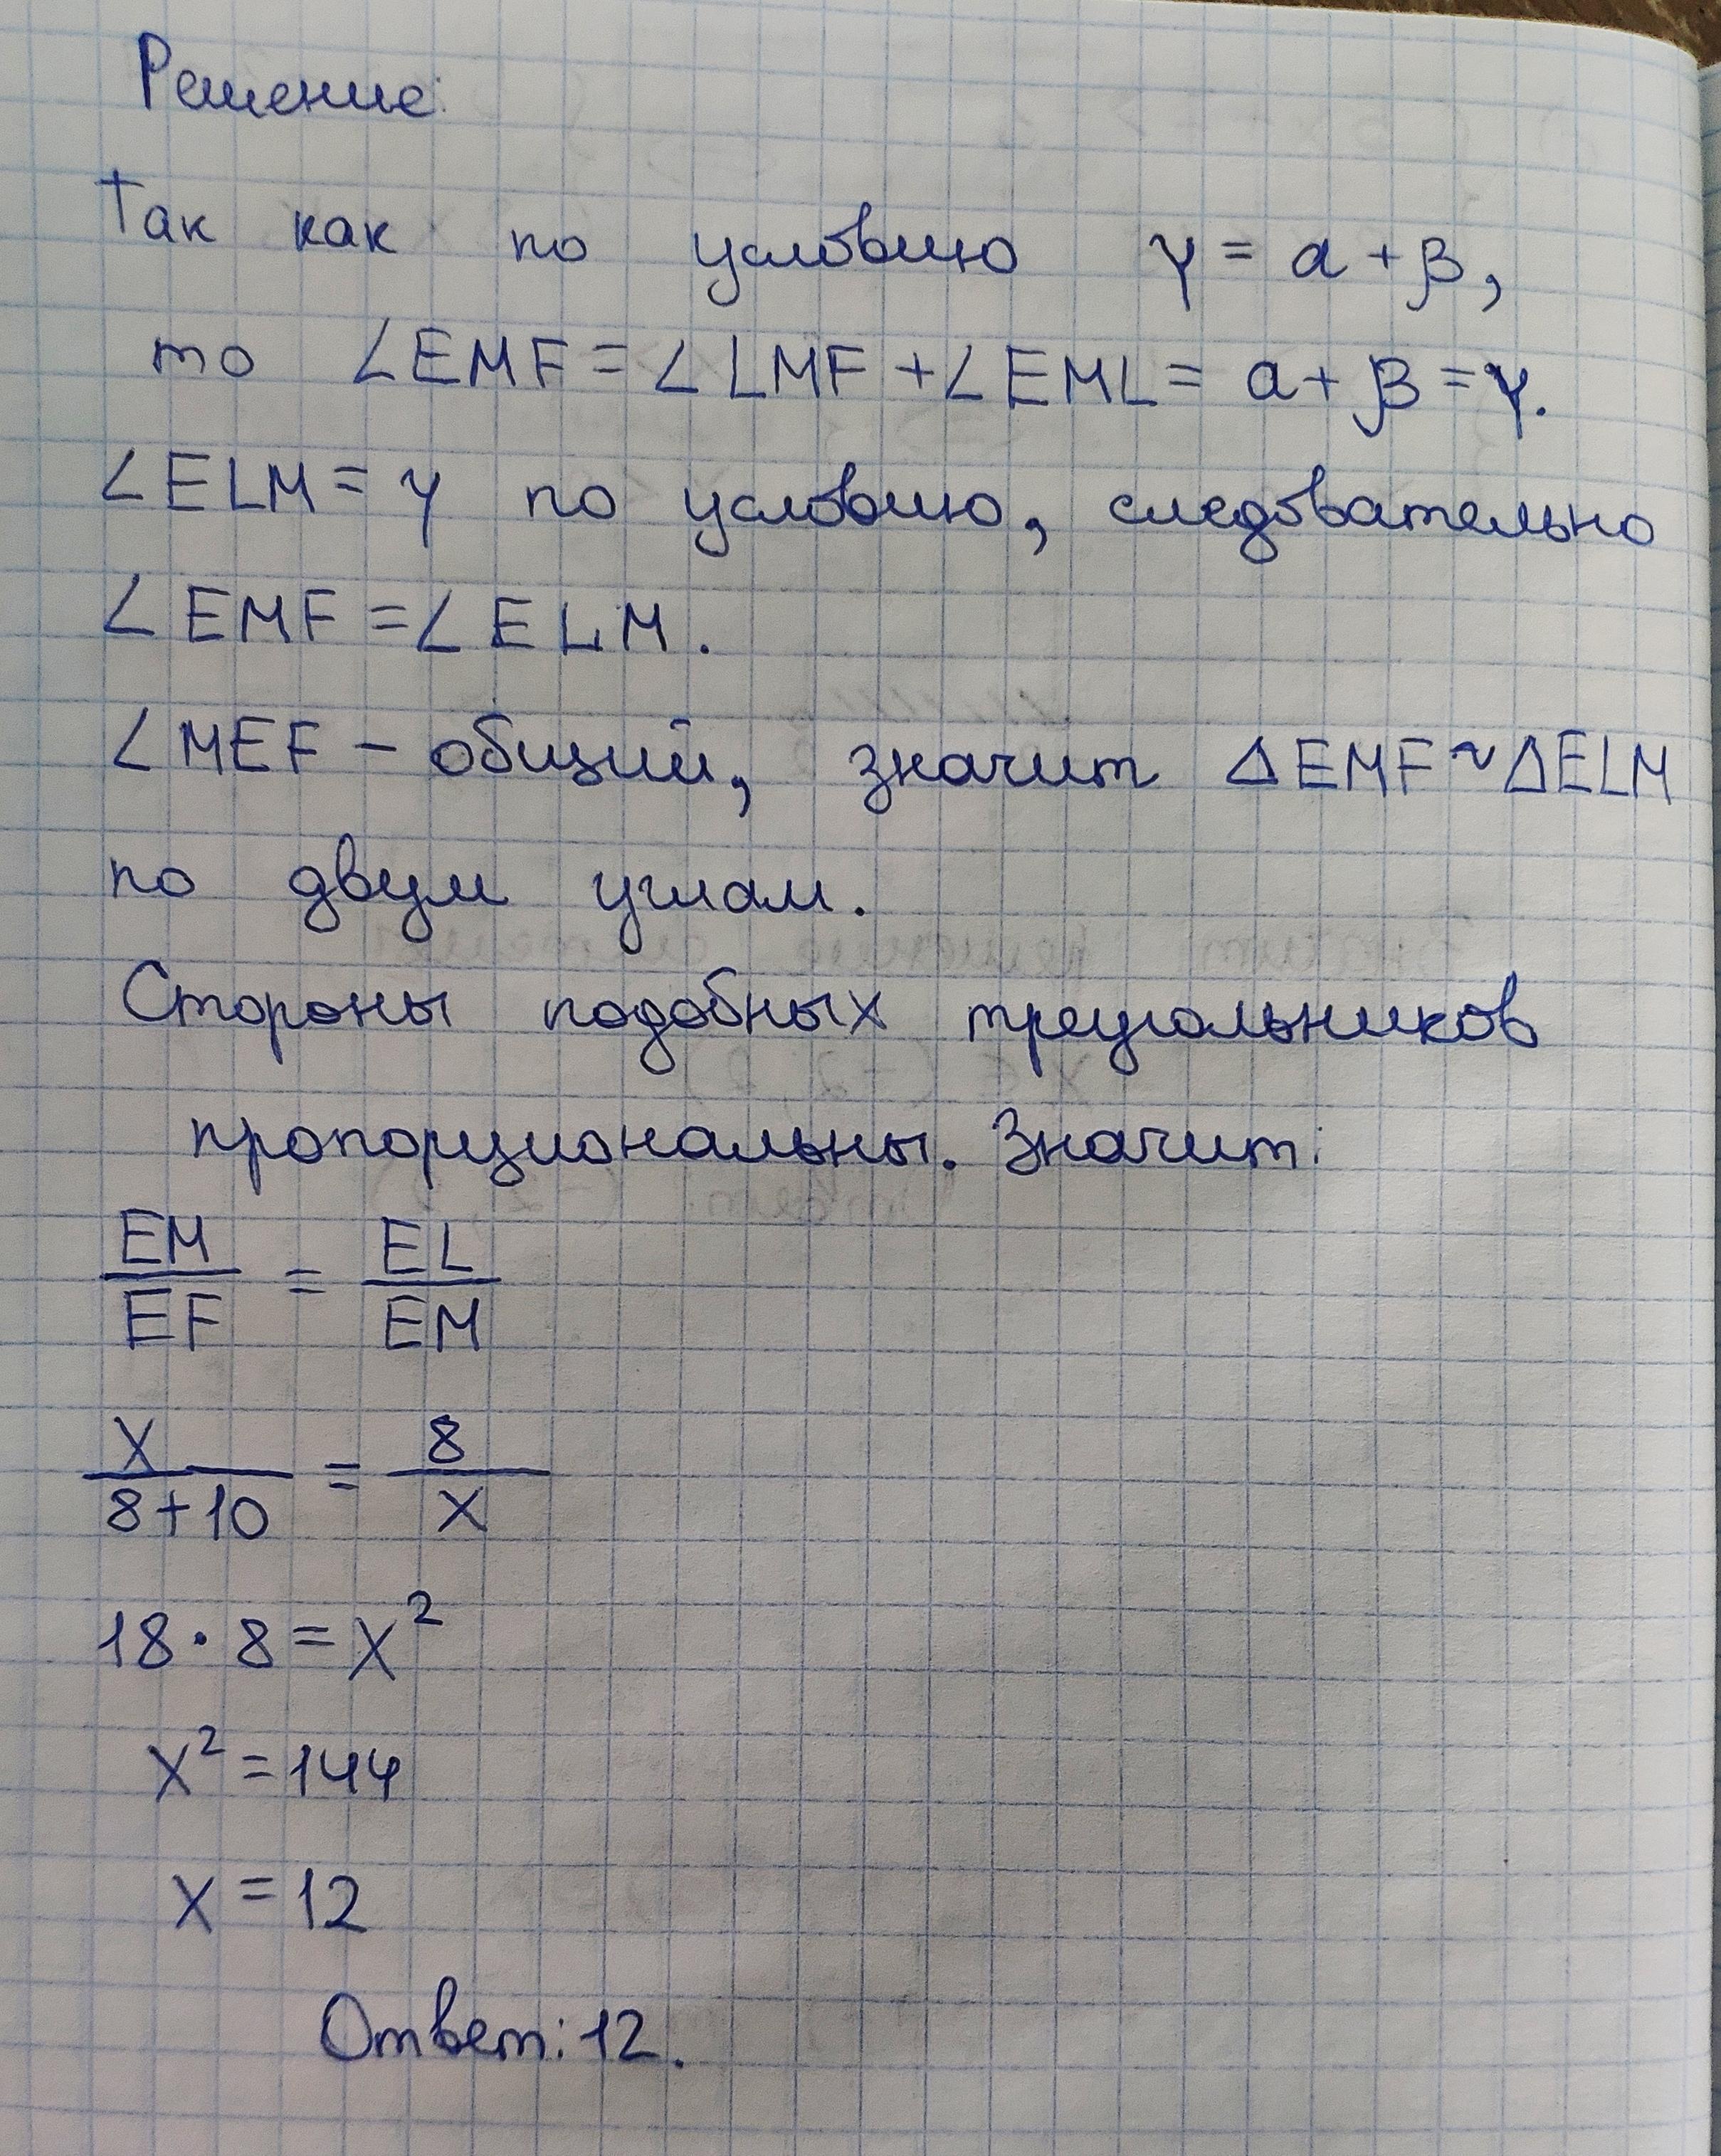 Решение:
Так как по условию γ = α + β,
то ∠EMF = ∠LMF + ∠EML = α + β = γ.
∠ELM = γ по условию, следовательно
∠EMF = ∠ELM.
∠MEF – общий, значит △EMF ~ △ELM
по двум углам.
Стороны подобных треугольников
пропорциональны. Значит:
EM/EF = EL/EM
x/(8+10) = 8/x
18 · 8 = x²
x² = 144
x = 12
Ответ: 12.